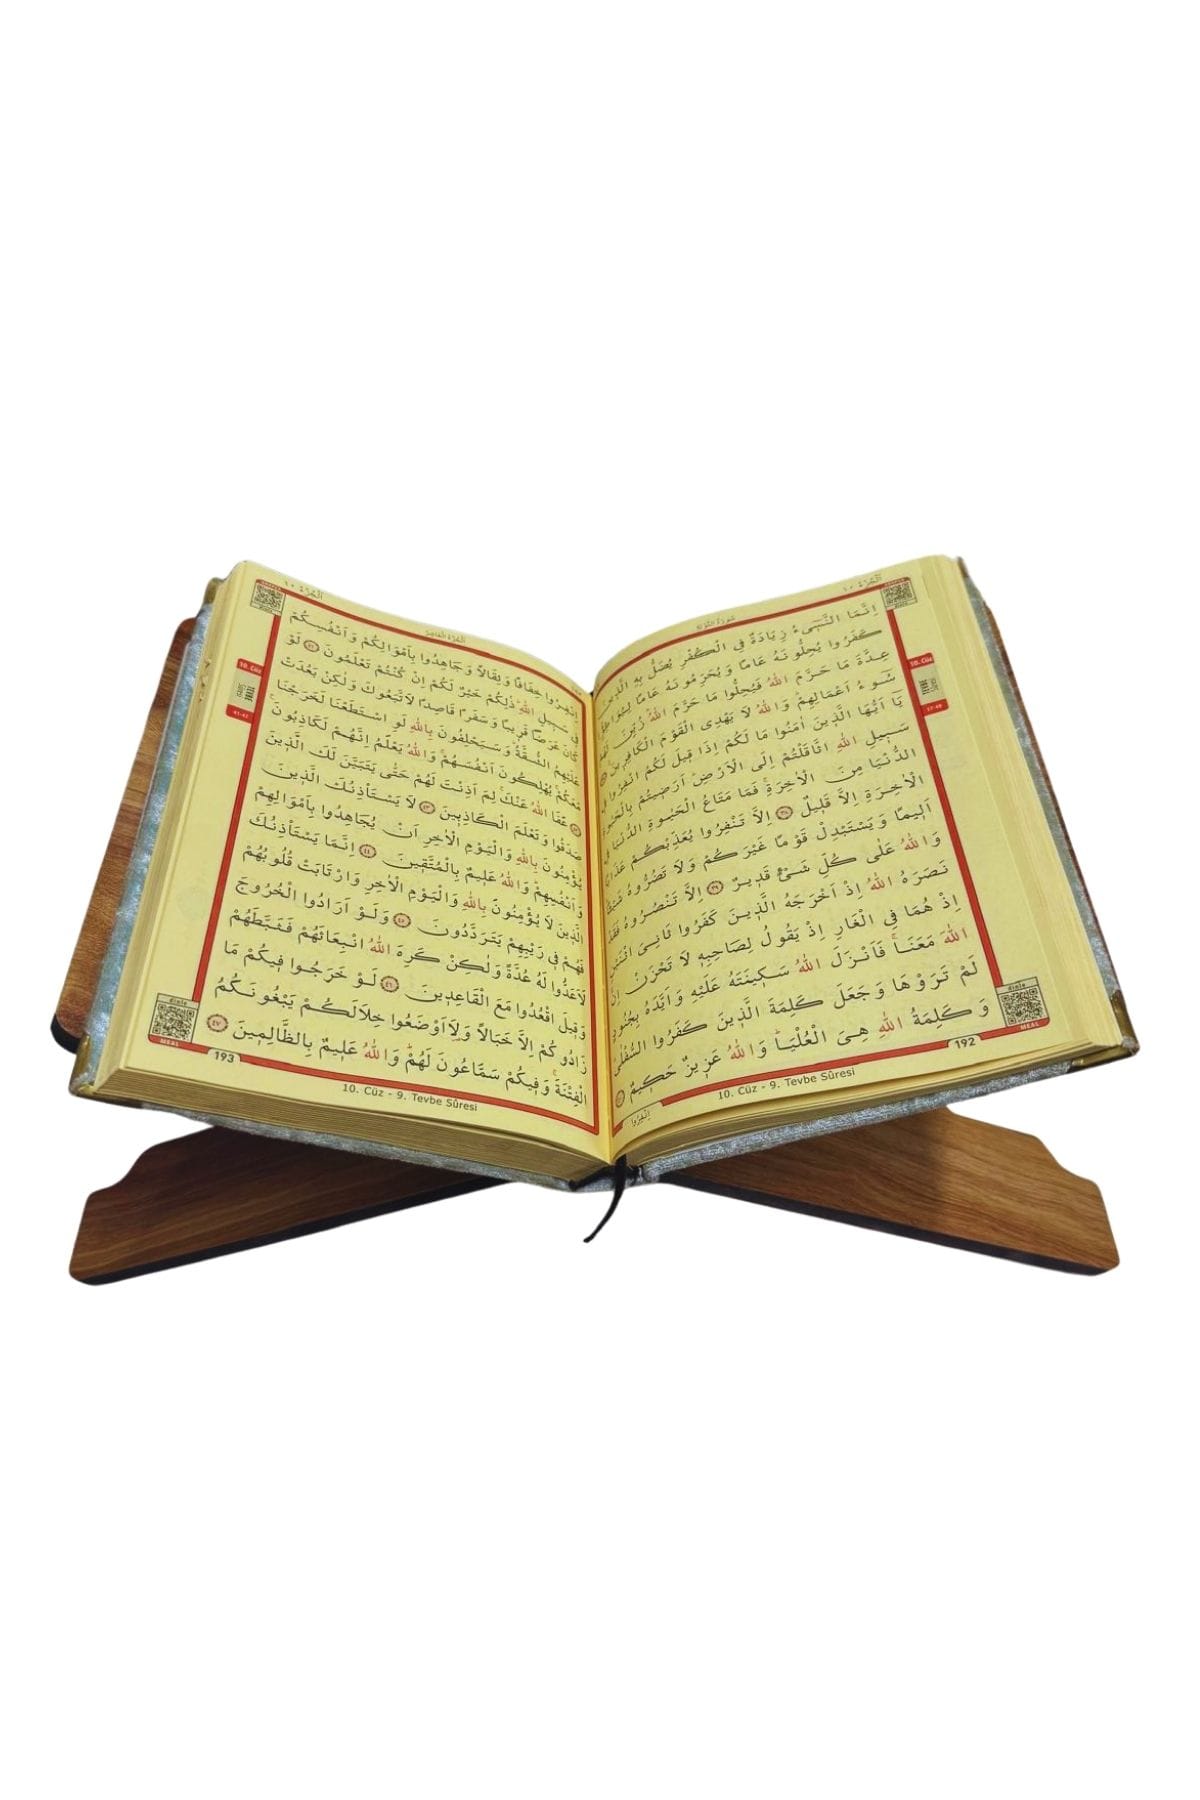 الْجُزْءُ ١٠
سُورَةُ التَّوْبَةِ
اِنَّمَا النَّسٖٓيءُ زِيَادَةٌ فِي الْكُفْرِ يُضَلُّ بِهِ الَّذٖينَ
كَفَرُوا يُحِلُّونَهُ عَامًا وَيُحَرِّمُونَهُ عَامًا لِيُوَاطِؤُا
عِدَّةَ مَا حَرَّمَ اللّٰهُ فَيُحِلُّوا مَا حَرَّمَ اللّٰهُ زُيِّنَ لَهُمْ
سُٓوءُ اَعْمَالِهِمْ وَاللّٰهُ لَا يَهْدِي الْقَوْمَ الْكَافِرٖينَ
يَٓا اَيُّهَا الَّذٖينَ اٰمَنُوا مَا لَكُمْ اِذَا قٖيلَ لَكُمُ انْفِرُوا فٖي
سَبٖيلِ اللّٰهِ اثَّاقَلْتُمْ اِلَى الْاَرْضِ اَرَضٖيتُمْ بِالْحَيٰوةِ
الدُّنْيَا مِنَ الْاٰخِرَةِ فَمَا مَتَاعُ الْحَيٰوةِ الدُّنْيَا فِي
الْاٰخِرَةِ اِلَّا قَلٖيلٌ ٣٨ اِلَّا تَنْفِرُوا يُعَذِّبْكُمْ عَذَابًا
اَلٖيمًا وَيَسْتَبْدِلْ قَوْمًا غَيْرَكُمْ وَلَا تَضُرُّوهُ شَيْـًٔا
وَاللّٰهُ عَلٰى كُلِّ شَيْءٍ قَدٖيرٌ ٣٩ اِلَّا تَنْصُرُوهُ فَقَدْ
نَصَرَهُ اللّٰهُ اِذْ اَخْرَجَهُ الَّذٖينَ كَفَرُوا ثَانِيَ اثْنَيْنِ
اِذْ هُمَا فِي الْغَارِ اِذْ يَقُولُ لِصَاحِبِهٖ لَا تَحْزَنْ اِنَّ
اللّٰهَ مَعَنَا فَاَنْزَلَ اللّٰهُ سَكٖينَتَهُ عَلَيْهِ وَاَيَّدَهُ بِجُنُودٍ
لَمْ تَرَوْهَا وَجَعَلَ كَلِمَةَ الَّذٖينَ كَفَرُوا السُّفْلٰى
وَكَلِمَةُ اللّٰهِ هِيَ الْعُلْيَا وَاللّٰهُ عَزٖيزٌ حَكٖيمٌ
اِنْفِرُوا
10. Cüz
37-40
dinle
MEAL
192
10. Cüz - 9. Tevbe Sûresi
الْجُزْءُ ١٠
اَلْجُزْءُ الْعَاشِرُ
اِنْفِرُوا خِفَافًا وَثِقَالًا وَجَاهِدُوا بِاَمْوَالِكُمْ وَاَنْفُسِكُمْ
فٖي سَبٖيلِ اللّٰهِ ذٰلِكُمْ خَيْرٌ لَكُمْ اِنْ كُنْتُمْ تَعْلَمُونَ ٤١ لَوْ
كَانَ عَرَضًا قَرٖيبًا وَسَفَرًا قَاصِدًا لَاتَّبَعُوكَ وَلٰكِنْ بَعُدَتْ
عَلَيْهِمُ الشُّقَّةُ وَسَيَحْلِفُونَ بِاللّٰهِ لَوِ اسْتَطَعْنَا لَخَرَجْنَا
مَعَكُمْ يُهْلِكُونَ اَنْفُسَهُمْ وَاللّٰهُ يَعْلَمُ اِنَّهُمْ لَكَاذِبُونَ
٤٢ عَفَا اللّٰهُ عَنْكَ لِمَ اَذِنْتَ لَهُمْ حَتّٰى يَتَبَيَّنَ لَكَ الَّذٖينَ
صَدَقُوا وَتَعْلَمَ الْكَاذِبٖينَ ٤٣ لَا يَسْتَأْذِنُكَ الَّذٖينَ
يُؤْمِنُونَ بِاللّٰهِ وَالْيَوْمِ الْاٰخِرِ اَنْ يُجَاهِدُوا بِاَمْوَالِهِمْ
وَاَنْفُسِهِمْ وَاللّٰهُ عَلٖيمٌ بِالْمُتَّقٖينَ ٤٤ اِنَّمَا يَسْتَأْذِنُكَ
الَّذٖينَ لَا يُؤْمِنُونَ بِاللّٰهِ وَالْيَوْمِ الْاٰخِرِ وَارْتَابَتْ قُلُوبُهُمْ
فَهُمْ فٖي رَيْبِهِمْ يَتَرَدَّدُونَ ٤٥ وَلَوْ اَرَادُوا الْخُرُوجَ
لَاَعَدُّوا لَهُ عُدَّةً وَلٰكِنْ كَرِهَ اللّٰهُ انْبِعَاثَهُمْ فَثَبَّطَهُمْ
وَقٖيلَ اقْعُدُوا مَعَ الْقَاعِدٖينَ ٤٦ لَوْ خَرَجُوا فٖيكُمْ مَا
زَادُوكُمْ اِلَّا خَبَالًا وَلَا۬اَوْضَعُوا خِلَالَكُمْ يَبْغُونَكُمُ
الْفِتْنَةَ وَفٖيكُمْ سَمَّاعُونَ لَهُمْ وَاللّٰهُ عَلٖيمٌ بِالظَّالِمٖينَ ٤٧
10. Cüz
41-47
dinle
MEAL
193
10. Cüz - 9. Tevbe Sûresi